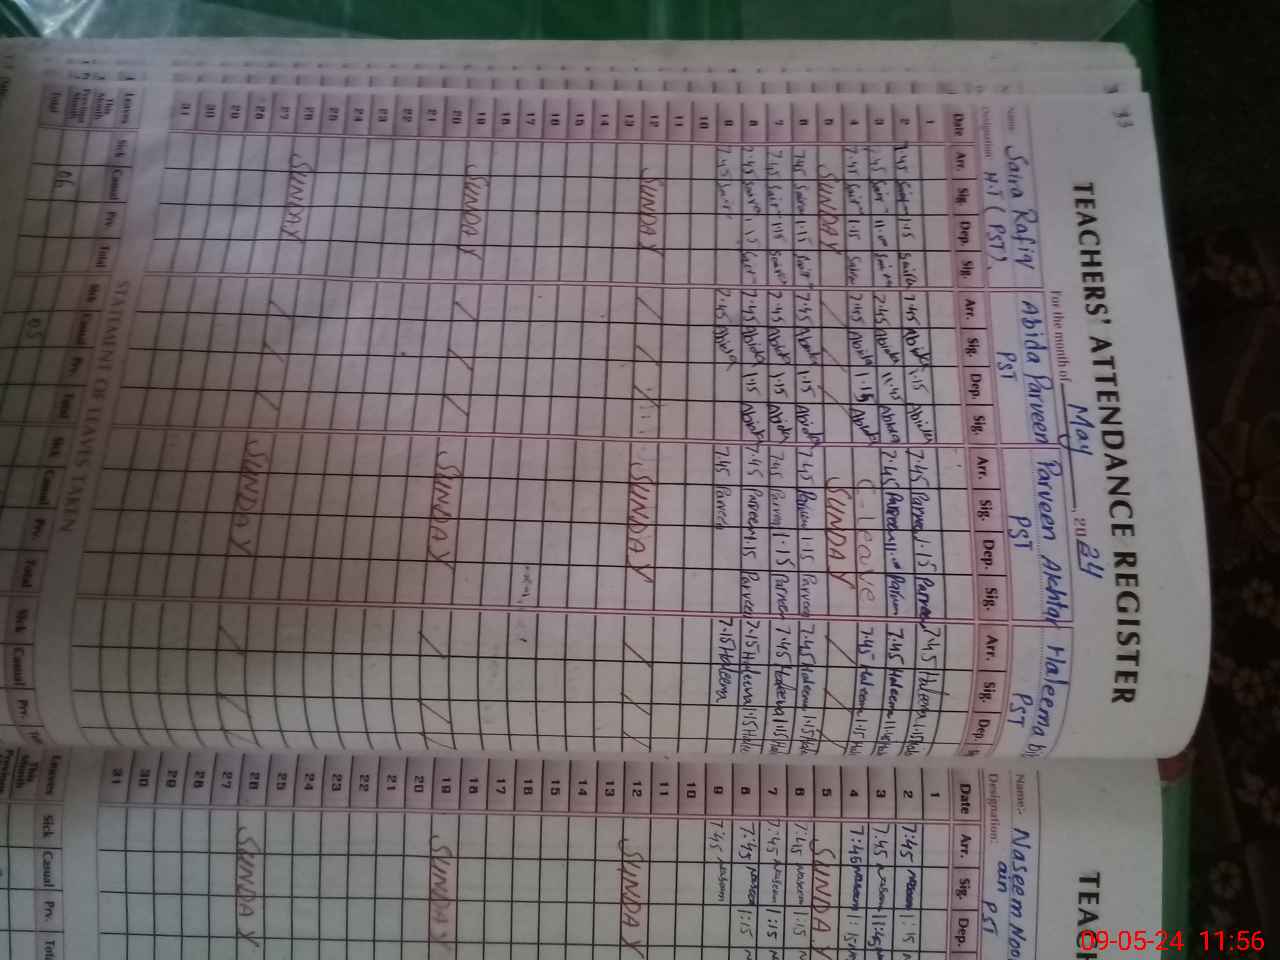 33
TEACHERS' ATTENDANCE REGISTER
For the month of May, 2024
Name Saira Rafiq Abida Parveen Parveen Akhtar Haleema bi
Designation H.T (PST). PST PST PST
Date Arr. Sig. Dep. Sig. Arr. Sig. Dep. Sig. Arr. Sig. Dep. Sig. Arr. Sig. Dep.
1
2 7.45 1.15 Saira 7.45 Abida 1.15 Abida 7.45 Parveen 1.15 Parveen 7.45 Haleem 1.15
3 7.45 7.45 Abida 11.45 Abida 7.45 Parveen Parveen 7.45 Haleem
4 7.45 1.15 Saira 7.45 Abida 1.15 Abida C-leave 7.45 Haleem 1.15
5 SUNDAY SUNDAY
6 7.45 Saira 1.15 7.45 Abida 1.15 Abida 7.45 Parveen 1.15 Parveen 7.45 Haleema 1.15
7 7.45 1.15 Saira 7.45 Abida 1.15 Abida 7.45 Parveen 1.15 Parveen 7.45 Haleema 1.15
8 7.45 Saira 1.15 7.45 Abida 1.15 Abida 7.45 Parveen 1.15 Parveen 7.15 Haleema 1.15
9 7.45 7.45 Abida 7.45 Parveen 7.15 Haleema
10
11
12 SUNDAY SUNDAY
13
14
15
16
17
18
19 SUNDAY SUNDAY
20
21
22
23
24
25
26 SUNDAY SUNDAY
27
28
29
30
31
STATEMENT OF LEAVES TAKEN
Leaves Sick Casual Prv. Total Sick Casual Prv. Total Sick Casual Prv. Total Sick Casual Prv.
This Month
Previous Month
Total 06 03
TEAC
Name:- Naseem Noo
Designation: ain PST
Date Arr. Sig. Dep.
1
2 7:45 1:15
3 7:45 Naseem 11:45
4 7:45 Naseem 1:15
5 SUNDAY
6 7:45 Naseem 1:15
7 7:45 Naseem 1:15
8 7:45 Naseem 1:15
9 7:45 Naseem
10
11
12 SUNDAY
13
14
15
16
17
18
19 SUNDAY
20
21
22
23
24
25
26 SUNDAY
27
28
29
30
31
Leaves Sick Casual Prv. Tota
This Month
Previous
09-05-24 11:56